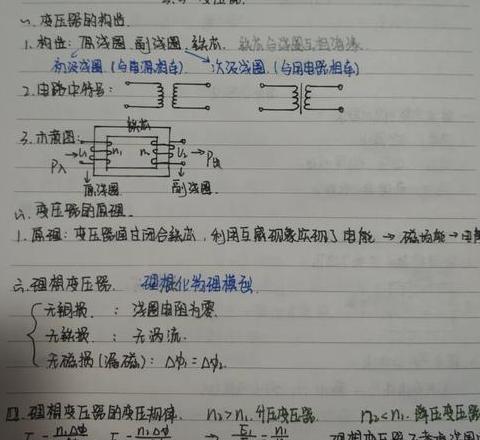 一、变压器的构造.
1. 构造: 原线圈 副线圈 铁芯. 铁芯与线圈互相绝缘
初级线圈 (与电源相连) 次级线圈 (与用电器相连)
2. 电路中符号:
铁芯
3. 示意图:
U₁ n₁ n₂ U₂
P入 P出
原线圈 副线圈.
变压器的原理.
1. 原理: 变压器通过闭合铁芯, 利用互感现象实现了电能 → 磁场能 → 电
三. 理想变压器. 理想化物理模型
无铜损. : 线圈电阻为零.
无铁损. : 无涡流.
无磁损 (漏磁): ΔΦ₁ = ΔΦ₂.
四. 理想变压器的变压规律. n₂>n₁. 升压变压器. n₂<n₁. 降压变压器